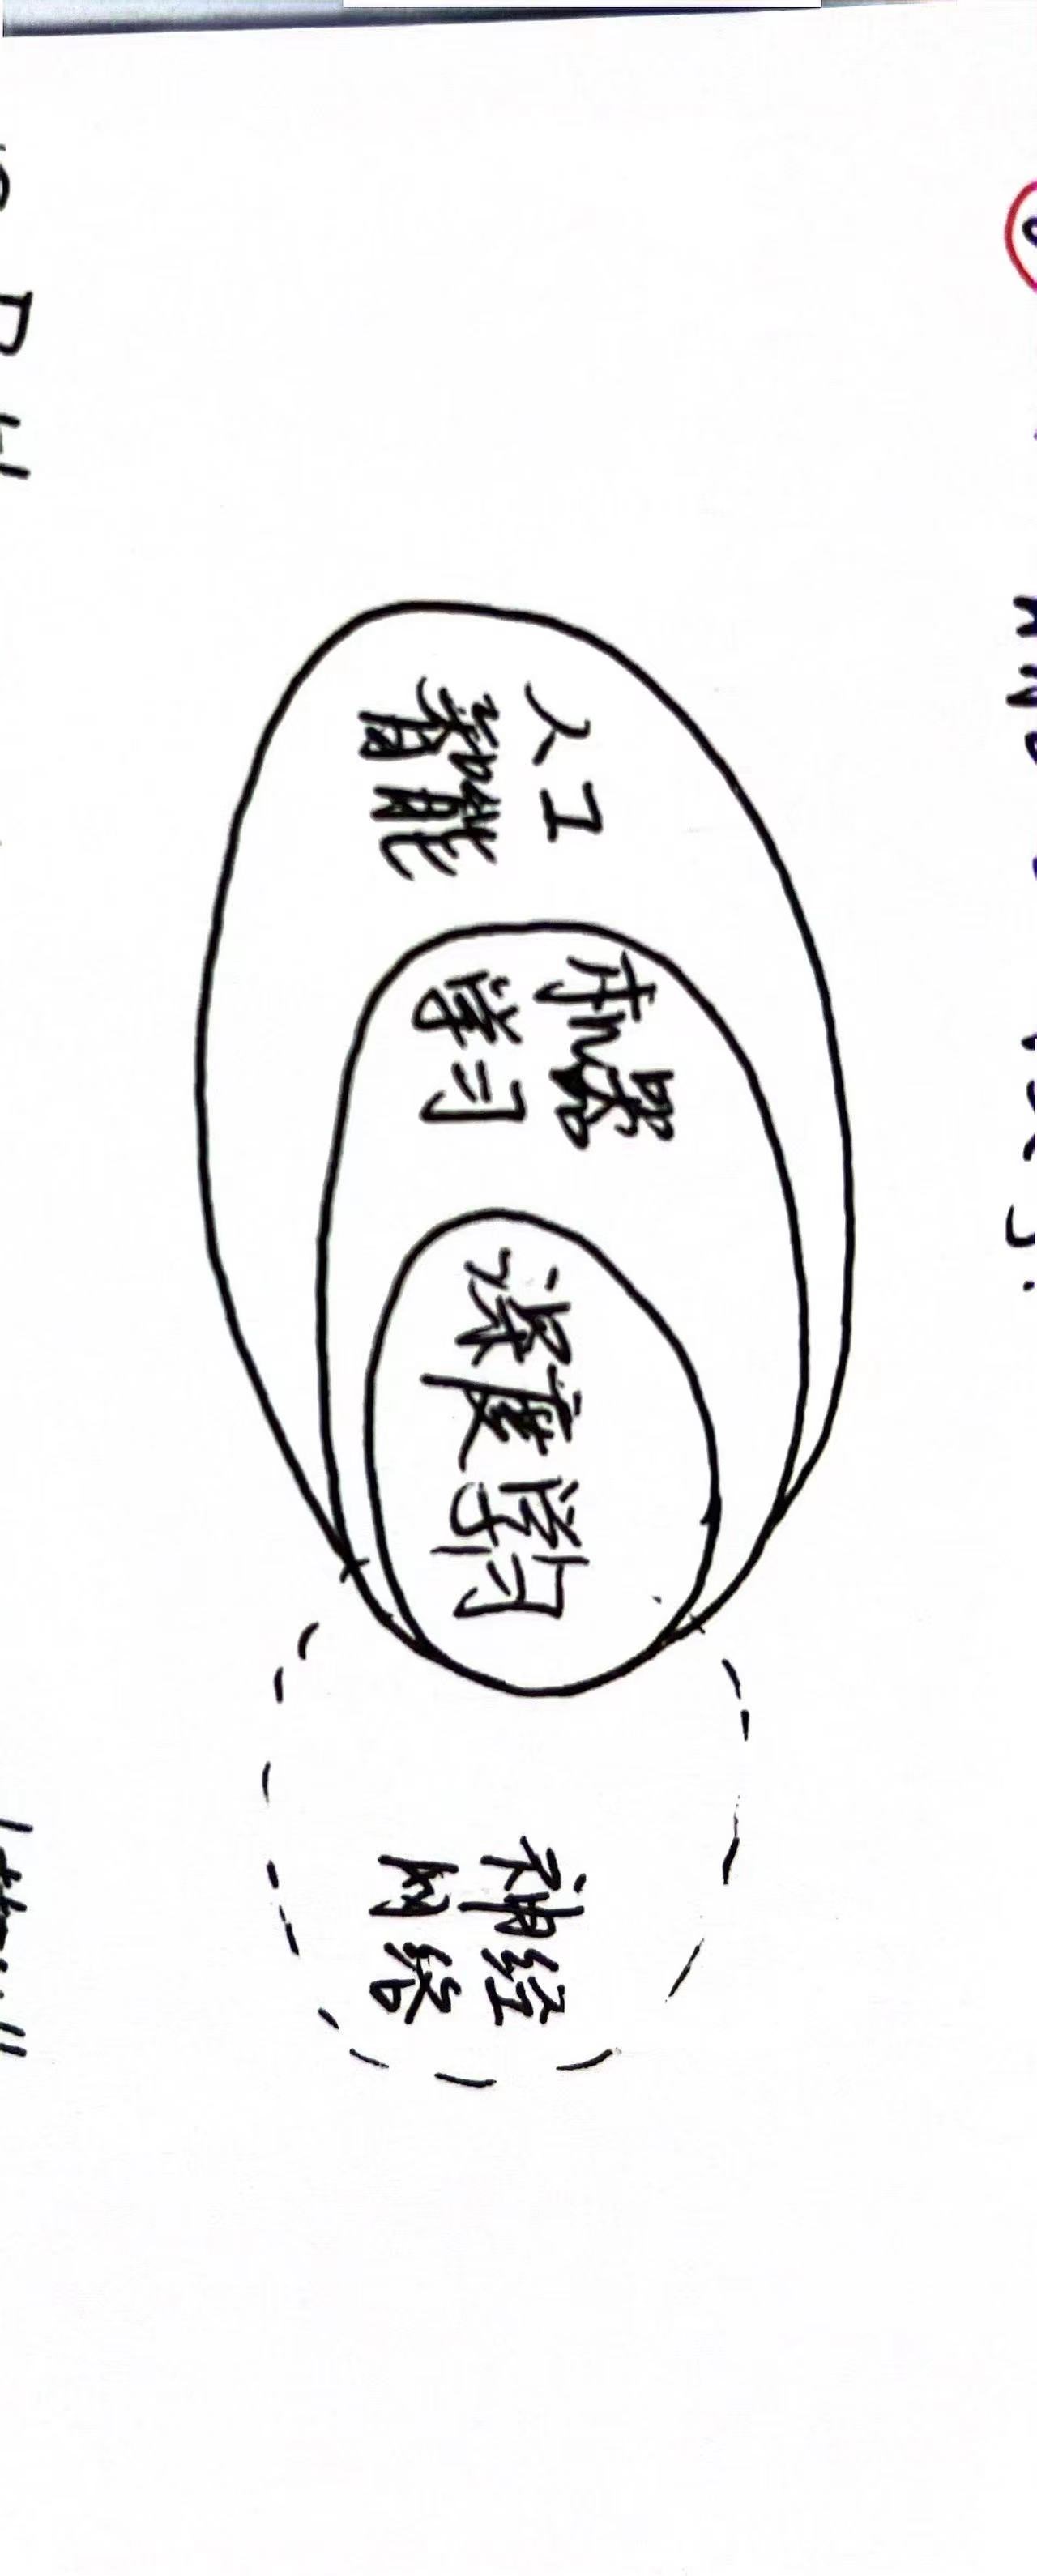 人工
智能
机器
学习
深度学习
神经
网络